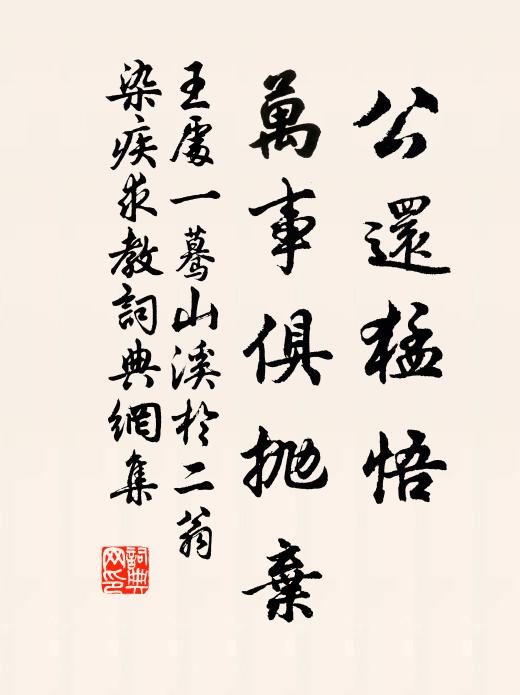 公還猛悟
萬事俱拋棄
王處一驀山溪於二翁
染疾求教詞典網集
詞典网印